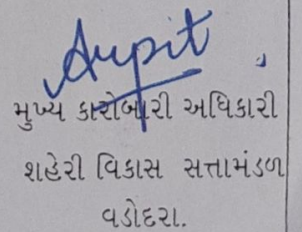 Arpit
મુખ્ય કારોબારી અધિકારી
શહેરી વિકાસ સત્તામંડળ
વડોદરા.